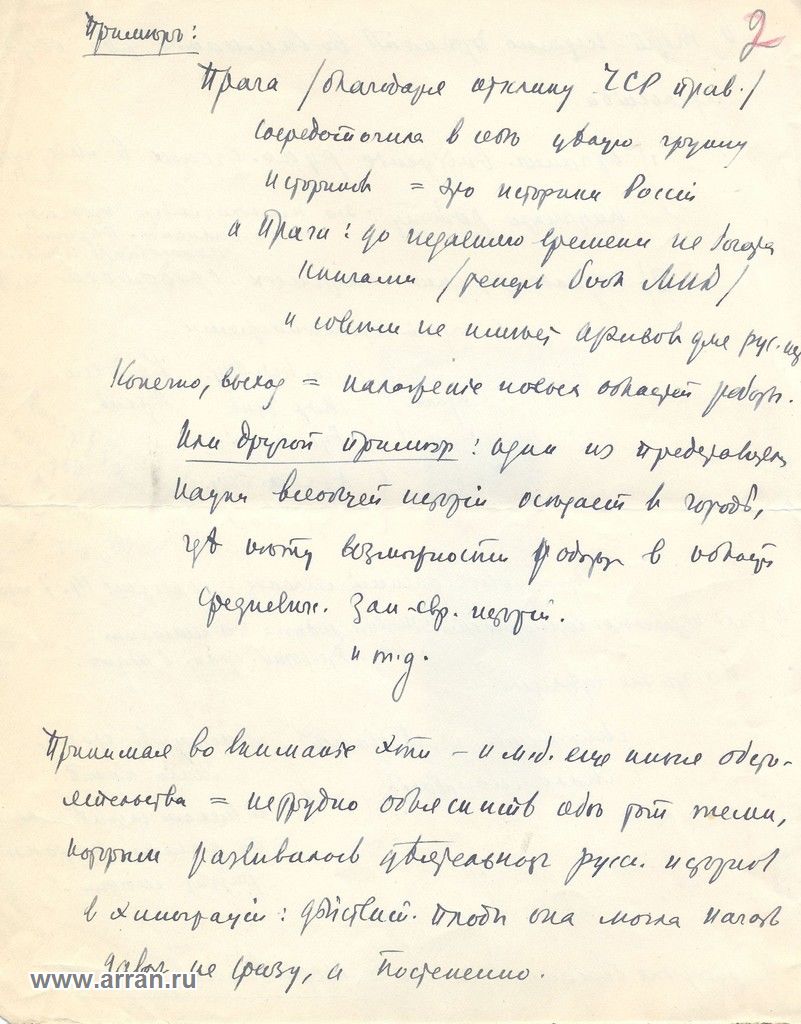 2
Примѣръ:
Прага /благодаря отклику ЧСР прав./
сосредоточила в себѣ цѣлую группу
историков = это историки Россіи
а Прага: до недавняго времени не богата
книгами /теперь библ МИД/
и совсѣм не имѣет архивов для рус. ист
Конечно, выход = нахожденіе новых областей работы.
Или другой примѣр: один из представителей
науки всеобщей исторіи осѣдает в городѣ,
гдѣ нѣт возможности работать в области
средневѣк. Зап-евр. исторіи.
и т.д.
Принимая во вниманіе эти – и м.б. еще иные обсто-
ятельства = нетрудно объяснить себѣ тот темп,
которым развивалась дѣятельность русск. историков
в эмиграціи: дѣйствит. плоды она могла начать
давать не сразу, а постепенно.
www.arran.ru